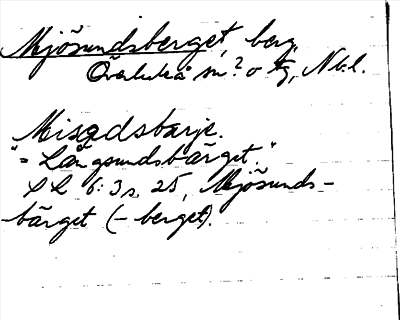 Mjösundsberget, berg,
Överluleå sn? o tg, Nb.l.
Misɘdsbarjɘ.
"= Långsundsbärget."
SL 6:3 s. 25, Mjösunds-
bärget (-berget).